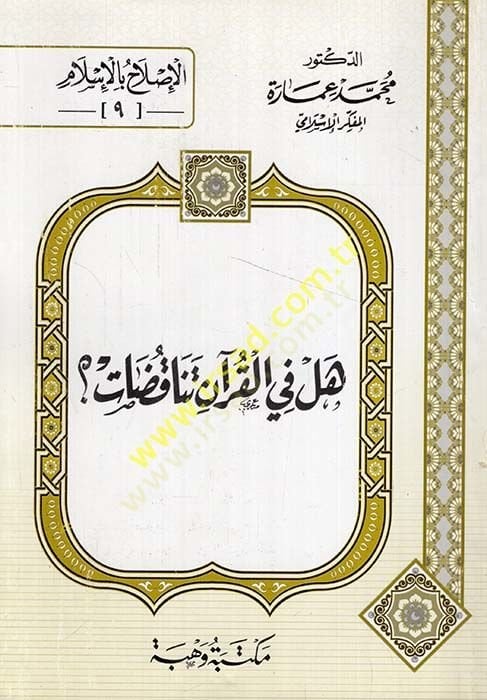 الدكتور
محمد عمارة
المفكر الإسلامي
الإصلاح بالإسلام
[٩]
هَل في القُرآنِ تَنَاقُضَات؟
مكتبة وهبة